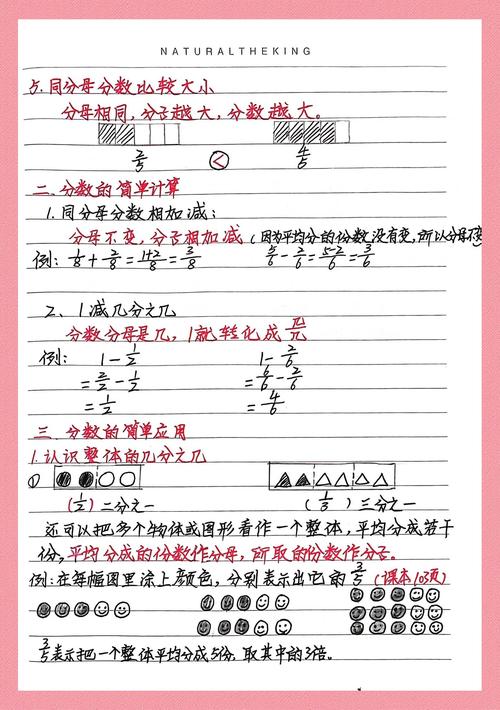 NATURALTHEKING
5. 同分母分数比较大小
分母相同，分子越大，分数越大。
2/5 < 4/5
二、分数的简单计算
1. 同分母分数相加减：
分母不变，分子相加减（因为平均分的份数没有变，所以分母不变
例：1/8+2/8=1+2/8=3/8 5/6-2/6=5-2/6=3/6
2、1减几分之几
分数分母是几，1就转化成几/几
例： 1-1/2 1-2/6
=2/2-1/2 =6/6-2/6
=1/2 =4/6
三、分数的简单应用
1. 认识整体的几分之几
①
（1/2）二分之一 （1/3）三分之一
还可以把多个物体或图形看作一个整体，平均分成若干
份，平均分成的份数作分母，所取的份数作分子。
例：在每幅图里涂上颜色，分别表示出它的3/5（课本103页）
3/5表示把一个整体平均分成5份，取其中的3倍。